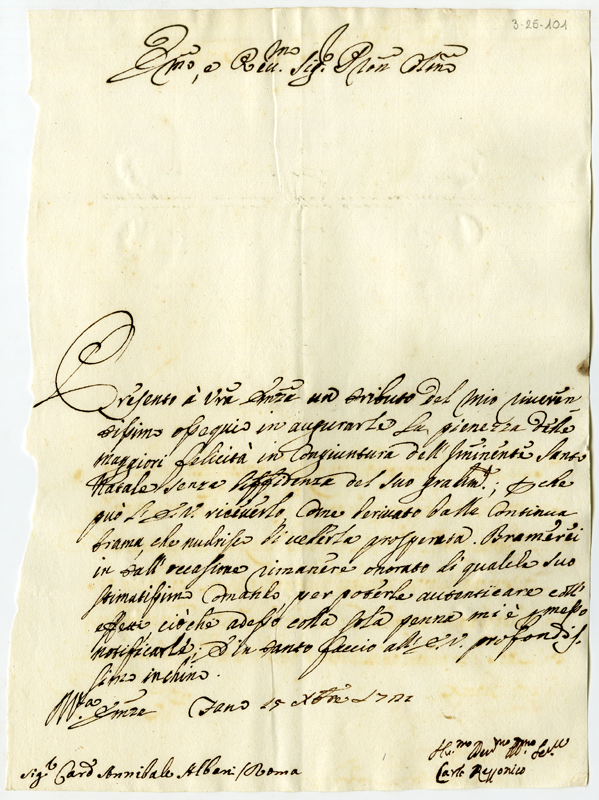 3-26-101
Emo, e Reu.mo Sig.r P'ron Colmo
Presento à Vrã Emza un tributo del mio riueren
tissimo ossequio in augurarle la pienezza delle
maggiori felicità in congiuntura dell'Iminente Santo
Natale, senza del suo gradim.; pche
può l'E.V. riceuerlo, come deriuato dalla continua
brama, che nudrisco di uederla prosperata. Bramerei
in tall'occasione rimanere onorato di qualche suo
stimatissimo comando, per poterle autenticare coll'
effetti ciòche adesso colla sola penna mi è pmesso
notificarle; E in tanto faccio all'E.V. profondis-
simo inchino.
V.ra Emza Fano 15 Xbre
Sig.r Card Annibale Albani / Roma
Hu.mo Deu.mo Ser.re
Carlo Rezzonico